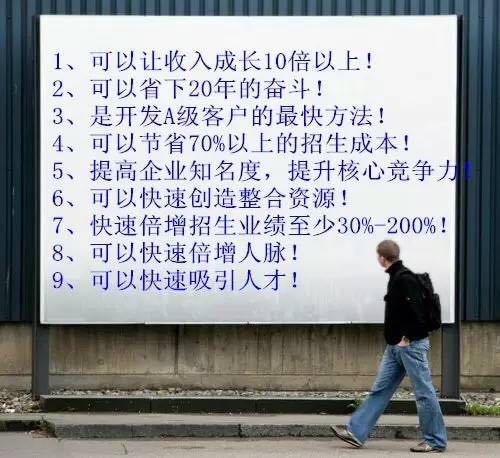 1、可以让收入成长10倍以上！
2、可以省下20年的奋斗！
3、是开发A级客户的最快方法！
4、可以节省70%以上的招生成本！
5、提高企业知名度，提升核心竞争力！
6、可以快速创造整合资源！
7、快速倍增招生业绩至少30%-200%！
8、可以快速倍增人脉！
9、可以快速吸引人才！